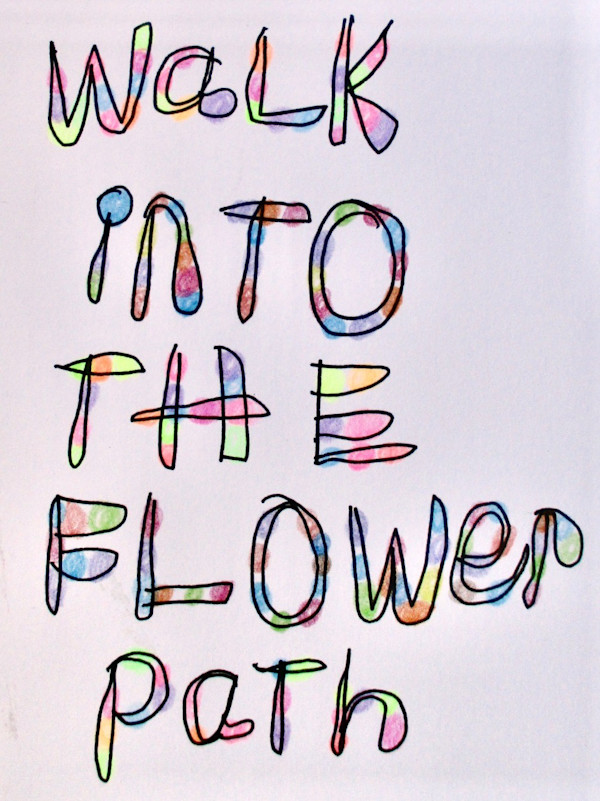 Walk
iNTO
THE
FLOWer
path